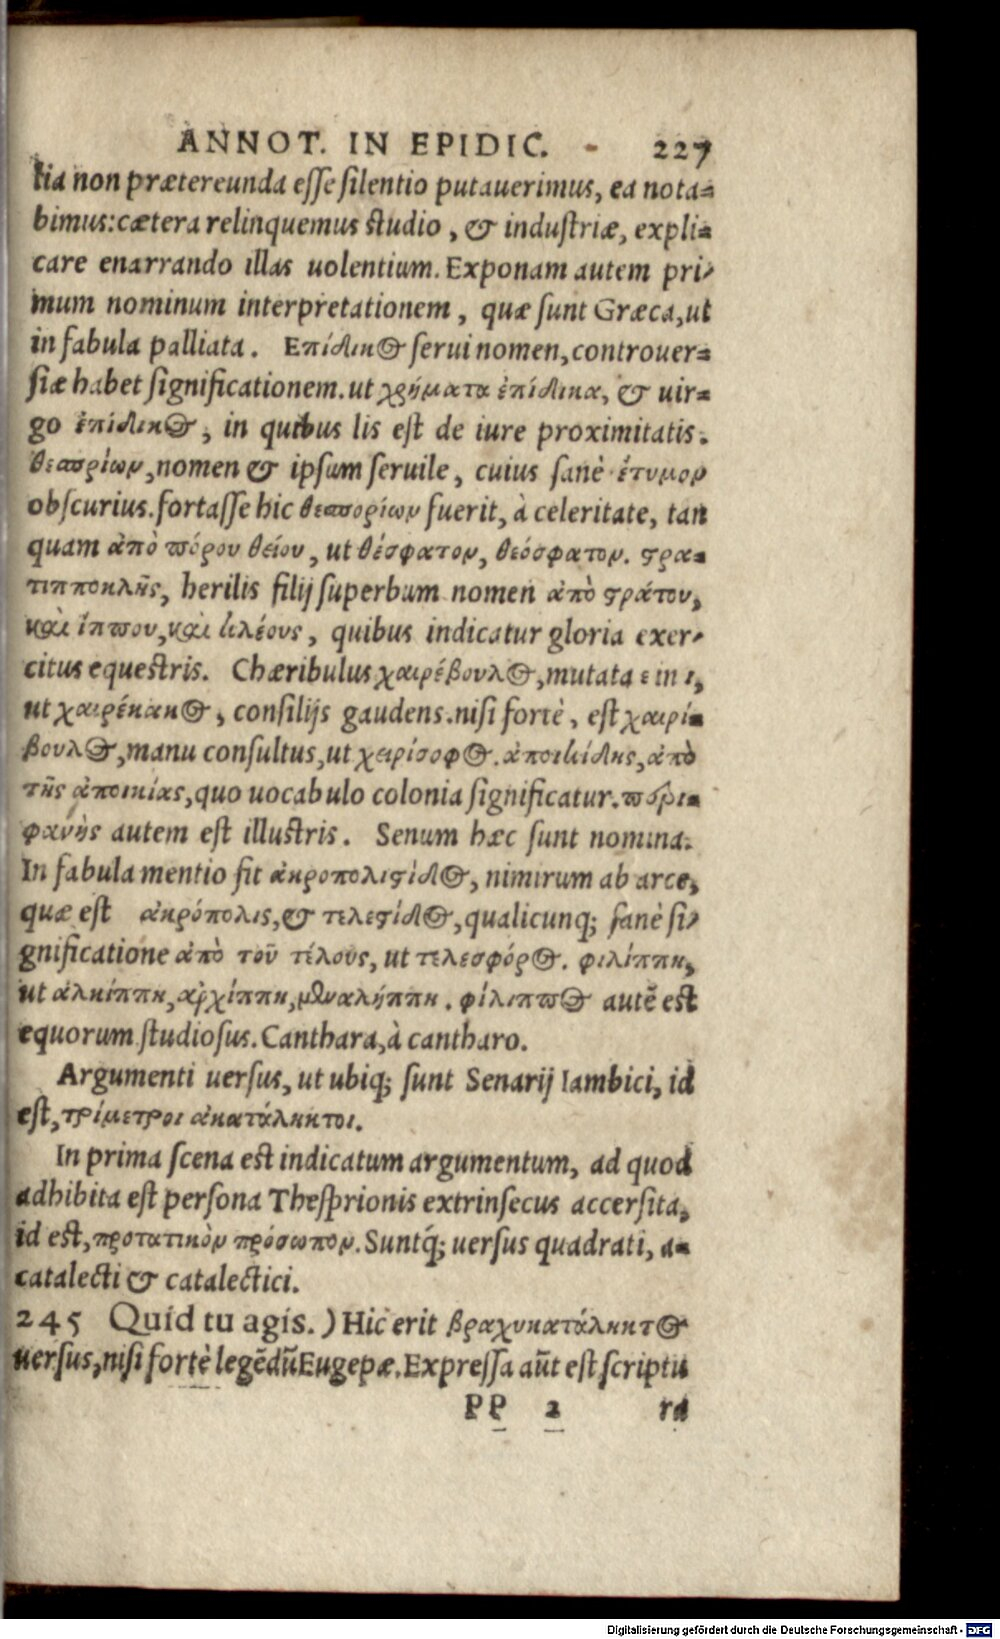 ANNOT. IN EPIDIC. 227
tia non prætereunda esse silentio putauerimus, ea nota=
bimus: cætera relinquemus studio, & industriæ, expli=
care enarrando illas uolentium. Exponam autem pri-
mum nominum interpretationem, quæ sunt Græca, ut
in fabula palliata. Επίδικος serui nomen, controuer=
siæ habet significationem. ut χρήματα ἐπίδικα, & uir=
go ἐπίδικος, in quibus lis est de iure proximitatis.
θεσπρίων, nomen & ipsum seruile, cuius sanè ἔτυμον
obscurius. fortasse hic θεσπορίων fuerit, à celeritate, tan
quam ἀπὸ πόρου θείου, ut θέσφατον, θεόσφατον. στρα=
τιπποκλῆς, herilis filij superbum nomen ἀπὸ στράτου,
καὶ ἵππου, καὶ κλέους, quibus indicatur gloria exer-
citus equestris. Chæribulus χαιρέβουλος, mutata ε in ι,
ut χαιρέκακος, consilijs gaudens. nisi fortè, est χαιρί=
βουλος, manu consultus, ut χειρίσοφος. ἀποικίδης, ἀπὸ
τῆς ἀποικίας, quo uocabulo colonia significatur. περι=
φανὴς autem est illustris. Senum hæc sunt nomina.
In fabula mentio fit ἀκροπολιστίδος, nimirum ab arce,
quæ est ἀκρόπολις, & τελεστίδος, qualicunq; sanè si-
gnificatione ἀπὸ τοῦ τέλους, ut τελεσφόρος. φιλίππη,
ut ἀλκίππη, ἀρχίππη, μεναλήππη. φίλιππος autē est
equorum studiosus. Canthara, à cantharo.
Argumenti uersus, ut ubiq; sunt Senarij Iambici, id
est, τρίμετροι ἀκατάληκτοι.
In prima scena est indicatum argumentum, ad quod
adhibita est persona Thesprionis extrinsecus accersita,
id est, προτατικὸν πρόσωπον. Suntq́; uersus quadrati, a=
catalecti & catalectici.
245 Quid tu agis.) Hic erit βραχυκατάληκτος
uersus, nisi fortè legēdū Eugepæ. Expressa aūt est scriptu
PP 2 ra
Digitalisierung gefördert durch die Deutsche Forschungsgemeinschaft - DFG